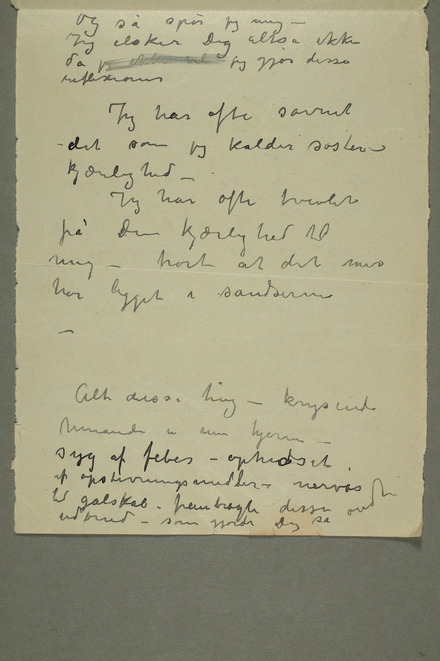 Og så spør jeg mig –
Jeg elsker Dig altså ikke
da jeg gjør disse
reflexioner
Jeg har ofte savnet
– det som jeg kalder søster–
kjærlighed –
Jeg har ofte tvivlet
på Din Kjærlighed til
mig – troet at det mes
har ligget i sandserne
–
Alt disse ting – krysende
hinande i min hjerne –
syg af feber – ophidset
af opstivningsmidler – nervøs
til galskab – frembragte disse
udbrud – som gjorde Dig så